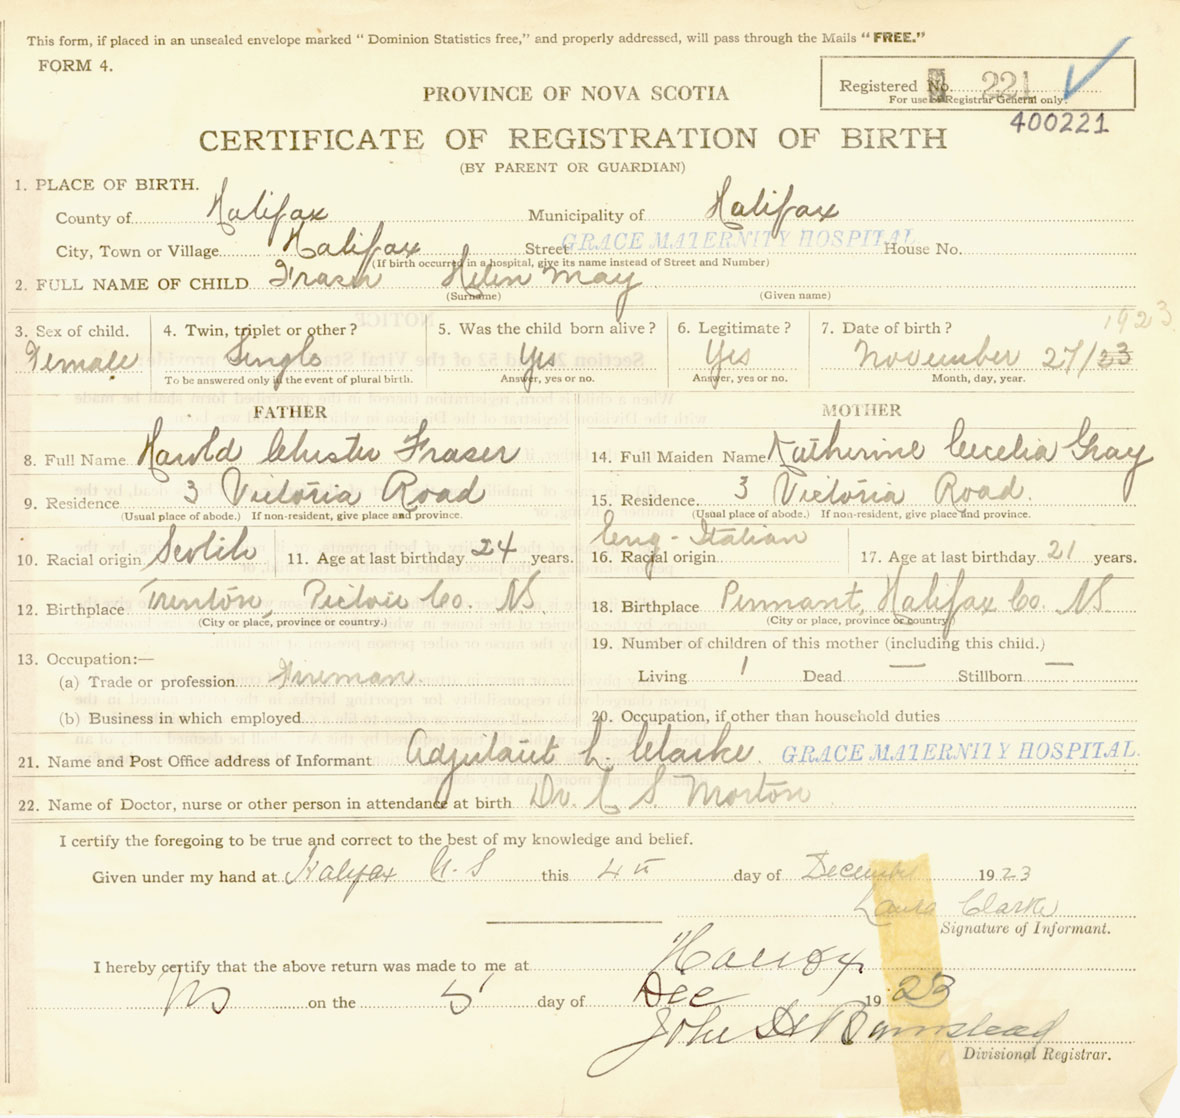 This form, if placed in an unsealed envelope marked "Dominion Statistics free," and properly addressed, will pass through the Mails "FREE."
FORM 4.
Registered No. 221
For use of Registrar General only.
400221
PROVINCE OF NOVA SCOTIA
CERTIFICATE OF REGISTRATION OF BIRTH
(BY PARENT OR GUARDIAN)
1. PLACE OF BIRTH.
County of Halifax Municipality of Halifax
City, Town or Village Halifax Street GRACE MATERNITY HOSPITAL House No.
(If birth occurred in a hospital, give its name instead of Street and Number)
2. FULL NAME OF CHILD Fraser Helen May
(Surname) (Given name)
3. Sex of child. 4. Twin, triplet or other? 5. Was the child born alive? 6. Legitimate? 7. Date of birth? 1923
Female Single Yes Yes November 27/23
To be answered only in the event of plural birth. Answer, yes or no. Answer, yes or no. Month, day, year.
FATHER MOTHER
8. Full Name Harold Chester Fraser 14. Full Maiden Name Katherine Cecelia Gray
9. Residence 3 Victoria Road 15. Residence 3 Victoria Road.
(Usual place of abode.) If non-resident, give place and province. (Usual place of abode.) If non-resident, give place and province.
10. Racial origin Scotch 11. Age at last birthday 24 years. 16. Racial origin Eng-Italian 17. Age at last birthday 21 years.
12. Birthplace Trenton, Pictou Co. NS 18. Birthplace Pennant, Halifax Co. NS
(City or place, province or country.) (City or place, province or country)
19. Number of children of this mother (including this child.)
13. Occupation:—
(a) Trade or profession Fireman Living 1 Dead — Stillborn —
(b) Business in which employed 20. Occupation, if other than household duties
21. Name and Post Office address of Informant Adjutant L. Clarke GRACE MATERNITY HOSPITAL.
22. Name of Doctor, nurse or other person in attendance at birth Dr. C S Morton
I certify the foregoing to be true and correct to the best of my knowledge and belief.
Given under my hand at Halifax N.S this 4th day of December 1923
Laura Clarke
Signature of Informant.
I hereby certify that the above return was made to me at Halifax
NS on the 5 day of Dec 1923
John
Divisional Registrar.